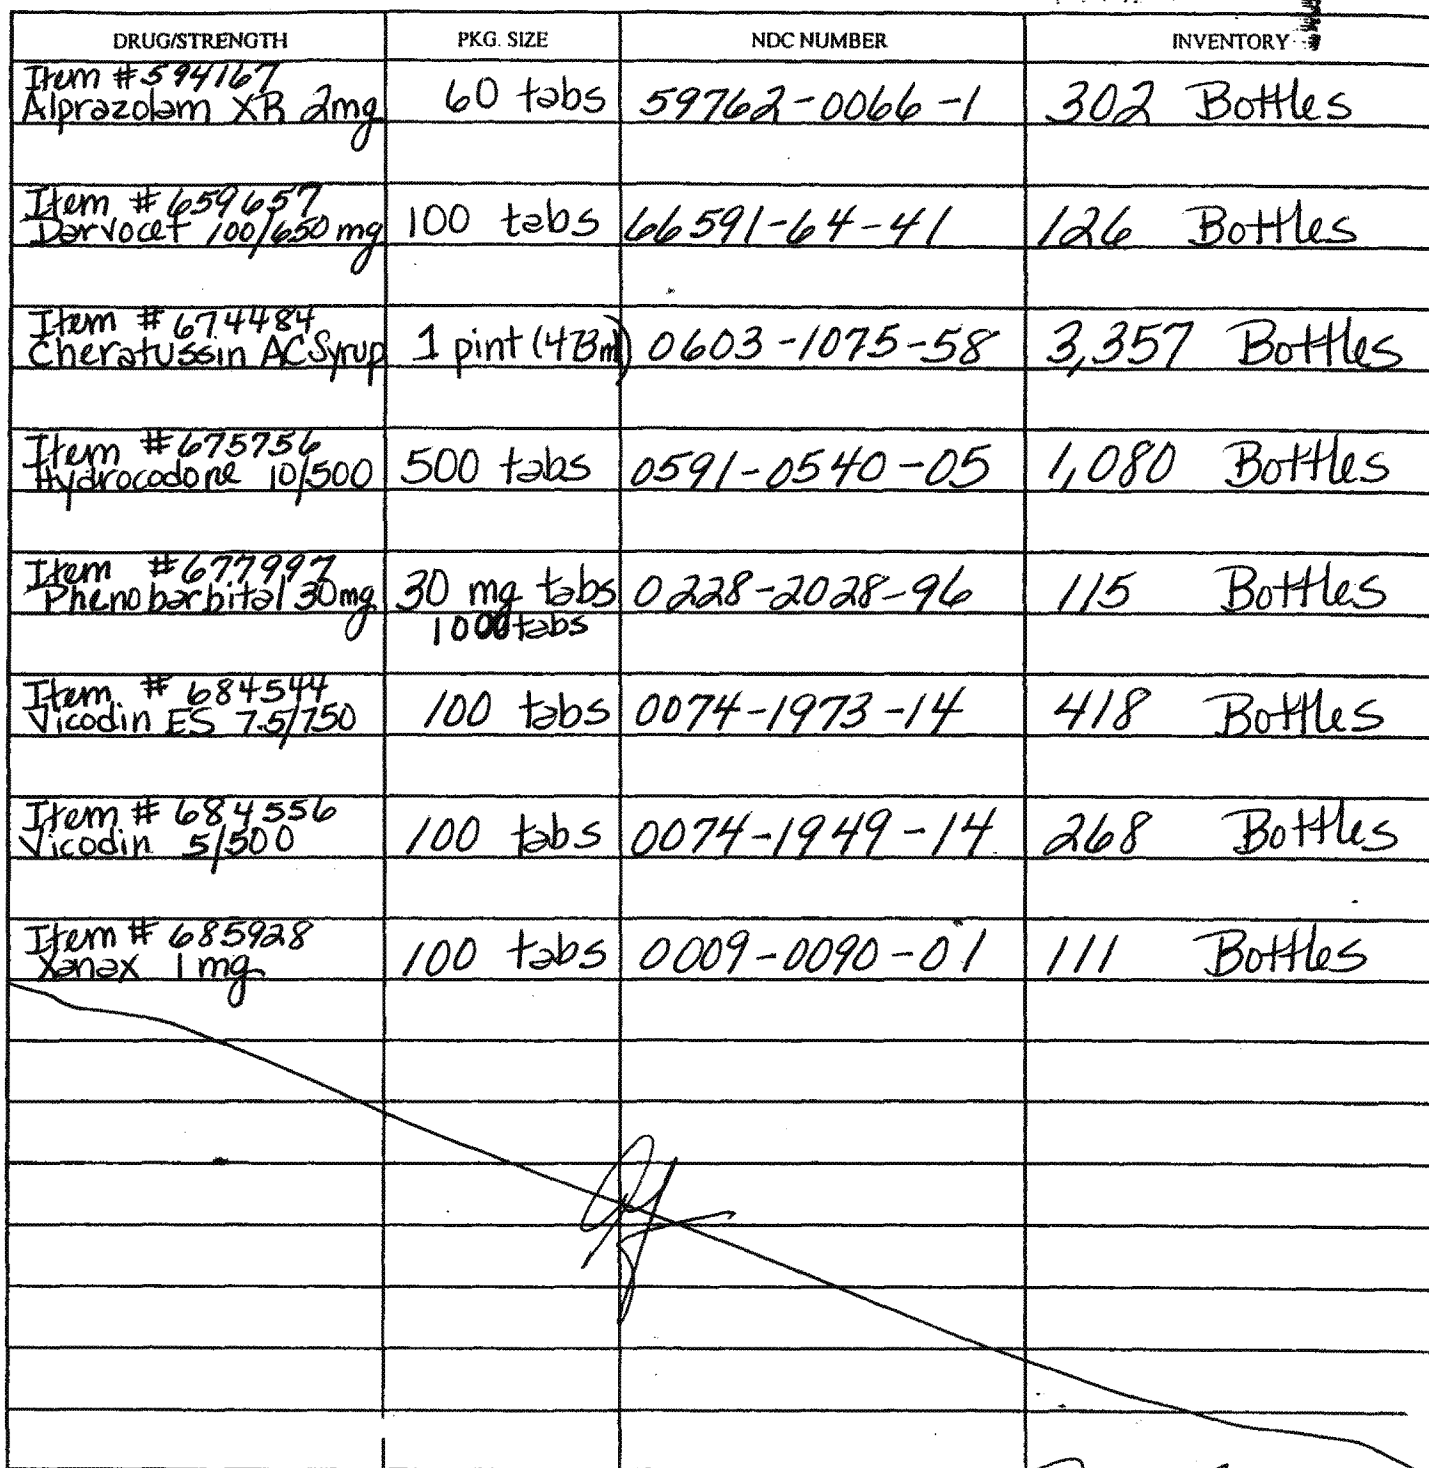 DRUG/STRENGTH PKG. SIZE NDC NUMBER INVENTORY
Item #594167
Alprazolam XR 2mg 60 tabs 59762-0066-1 302 Bottles
Item #659657
Darvocet 100/650 mg 100 tabs 66591-64-41 126 Bottles
Item #674484
Cheratussin AC Syrup 1 pint (473ml) 0603-1075-58 3,357 Bottles
Item #675756
Hydrocodone 10/500 500 tabs 0591-0540-05 1,080 Bottles
Item #677997
Phenobarbital 30mg 30 mg tabs 0228-2028-96 115 Bottles
1000 tabs
Item # 684544
Vicodin ES 7.5/750 100 tabs 0074-1973-14 418 Bottles
Item # 684556
Vicodin 5/500 100 tabs 0074-1949-14 268 Bottles
Item # 685928
Xanax 1mg 100 tabs 0009-0090-01 111 Bottles